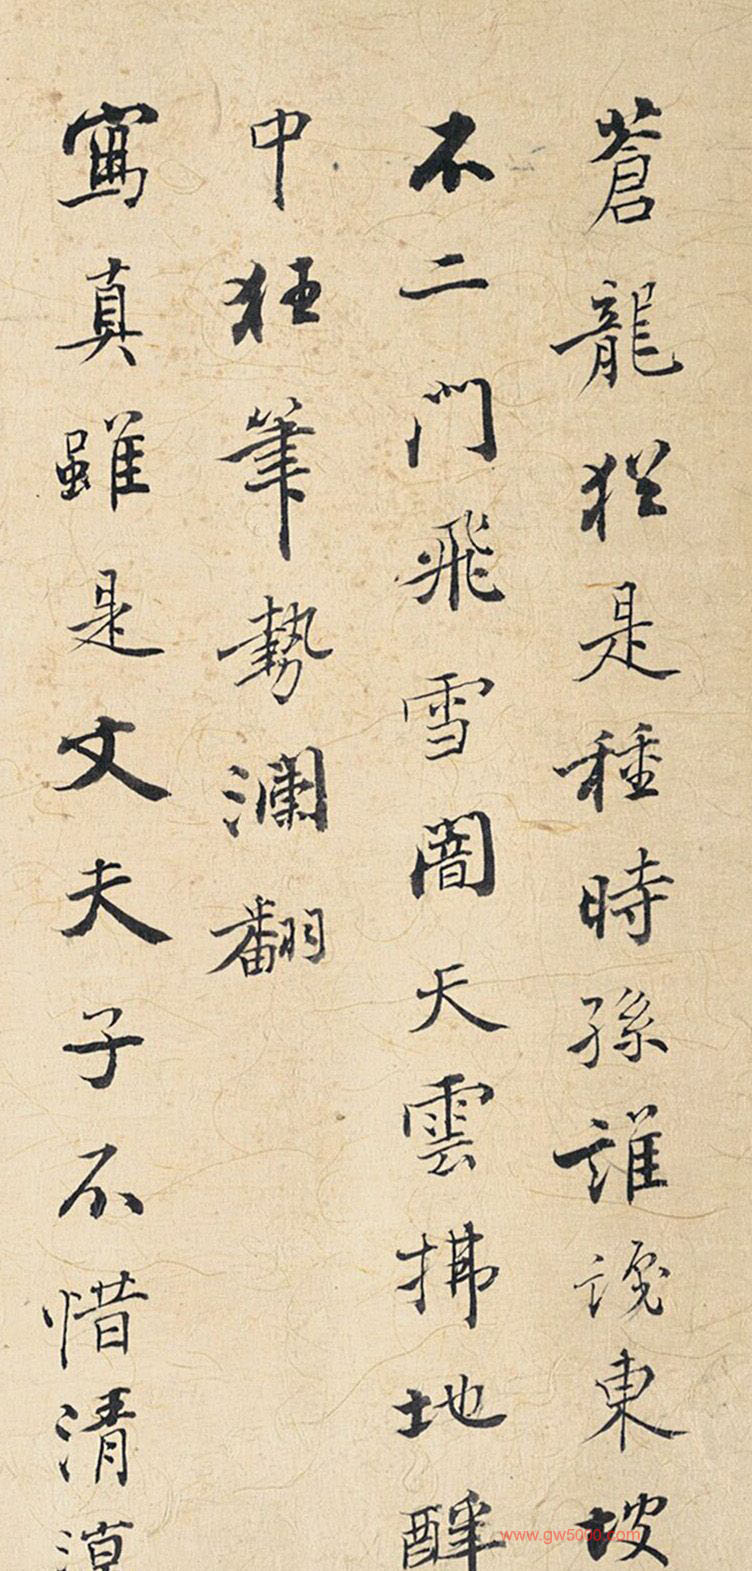 蒼龍犹是種時孫誰說東坡
不二門飛雪闇天雲拂地醉
中狂筆勢瀾翻
寫真雖是文夫子不惜清凉
www.gw5000.com